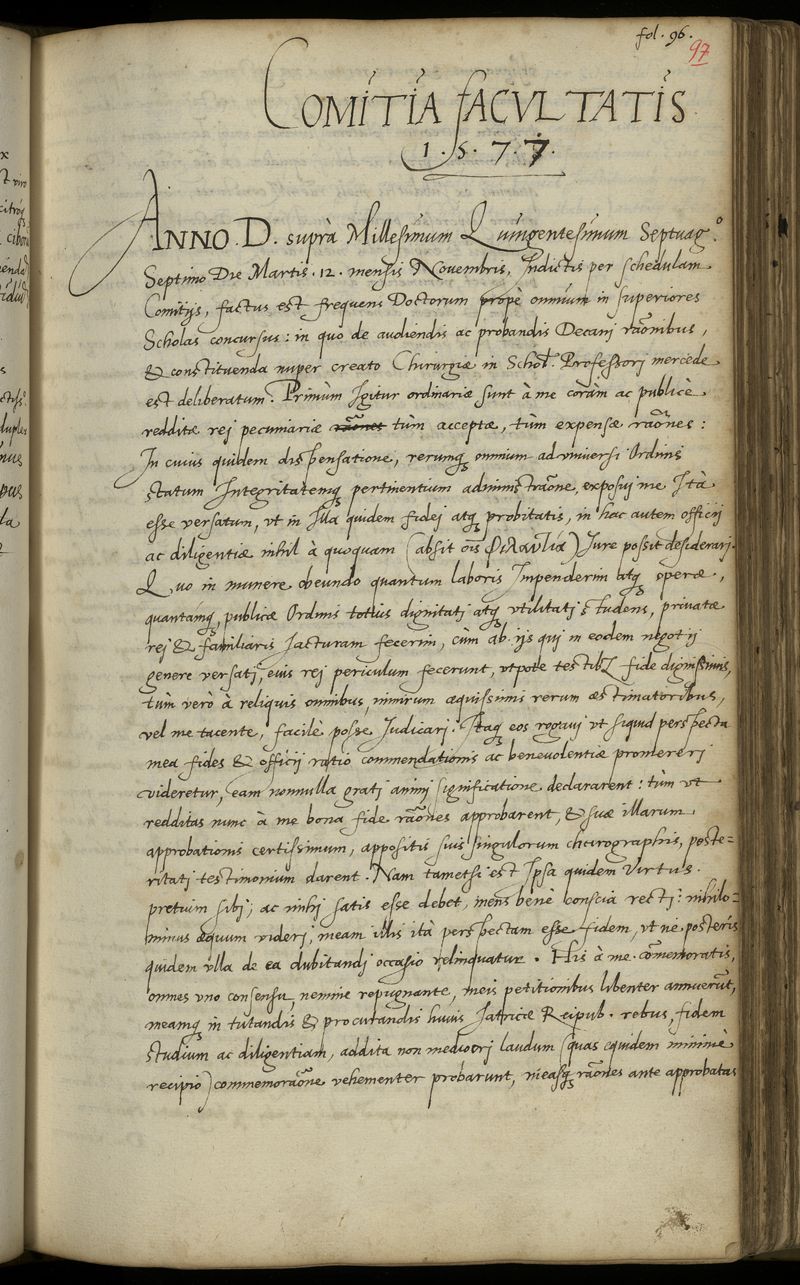 fol. 96.
97
COMITIA FACVLTATIS
1.5.7.7.
ANNO. D. suprà Millesimum Quingentesimum Septuag.o
Septimo Die Martis. 12. mensis Novembris, Indictis per schedulam
Comitijs, factus est frequens Doctorum propè omnium in superiores
Scholas concursus: in quo de audiendis ac probandis Decani raõnibus,
& constituenda nuper creato Chirurgiæ in Schol. Professori mercede
est deliberatum. Primùm Igitur ordinariæ sunt à me coràm ac publicè
redditæ rej pecuniariæ raõnes tùm acceptæ, tùm expensæ raõnes:
In cuius quidem dispensatione, rerumq3 omnium ad universi Ordinis
statum Integritatemq3 pertinentium administraõne, exposuj me Ità
esse versatum, vt in Illa quidem fidej atq3 probitatis, in hac autem officij
ac diligentiæ nihil à quoquam (absit oĩs φιλαυτία) Jure possit desiderarj.
Quo in munere obeundo quantum laboris Impenderim atq3 operæ,
quantámq3, publicæ Ordinis totius dignitatj atq3 vtilitatj studens, privatæ
rej & familiaris Jacturam fecerim, cùm ab ijs qui in eodem negotij
genere versatj, euis rej periculum fecerunt, vtpote testib3 fide dignissimis,
tùm verò à reliquis omnibus, nimirum æquissimis rerum æstimatoribus,
vel me tacente, facilè posse Judicarj. Itaq3 eos rogauj vt siquid perspecta
mea fides & officij ratio commendationis ac benevolentiæ promererj
videretur, eam nonnulla gratj animj significatione declararent: tùm vt
redditas nunc à me bona fide raõnes approbarent, & suæ illarum
approbationis certissimum, appositis suis singulorum chirographis, poste=
ritatj testimonium darent. Nam tametsi est Ipsa quidem Virtus
pretium sibj, ac mihj satis esse debet, mens benè conscia rectj: nihilo=
minus æquum viderj, meam illis ità perspectam esse fidem, vt ne posteris
quidem vlla de ea dubitandj occasio relinquatur. His à me cõmemoratis,
omnes vno consensu, nemine repugnante, meis petitionibus libenter annuerũt,
meamq3 in tutandis & procurandis huius Iatricæ Reipub. rebus, fidem
studium ac diligentiam, addita non mediocrj laudum (quas equidem minimè
recipio) commemoraõne vehementer probarunt, measq3 raõnes ante approbatas